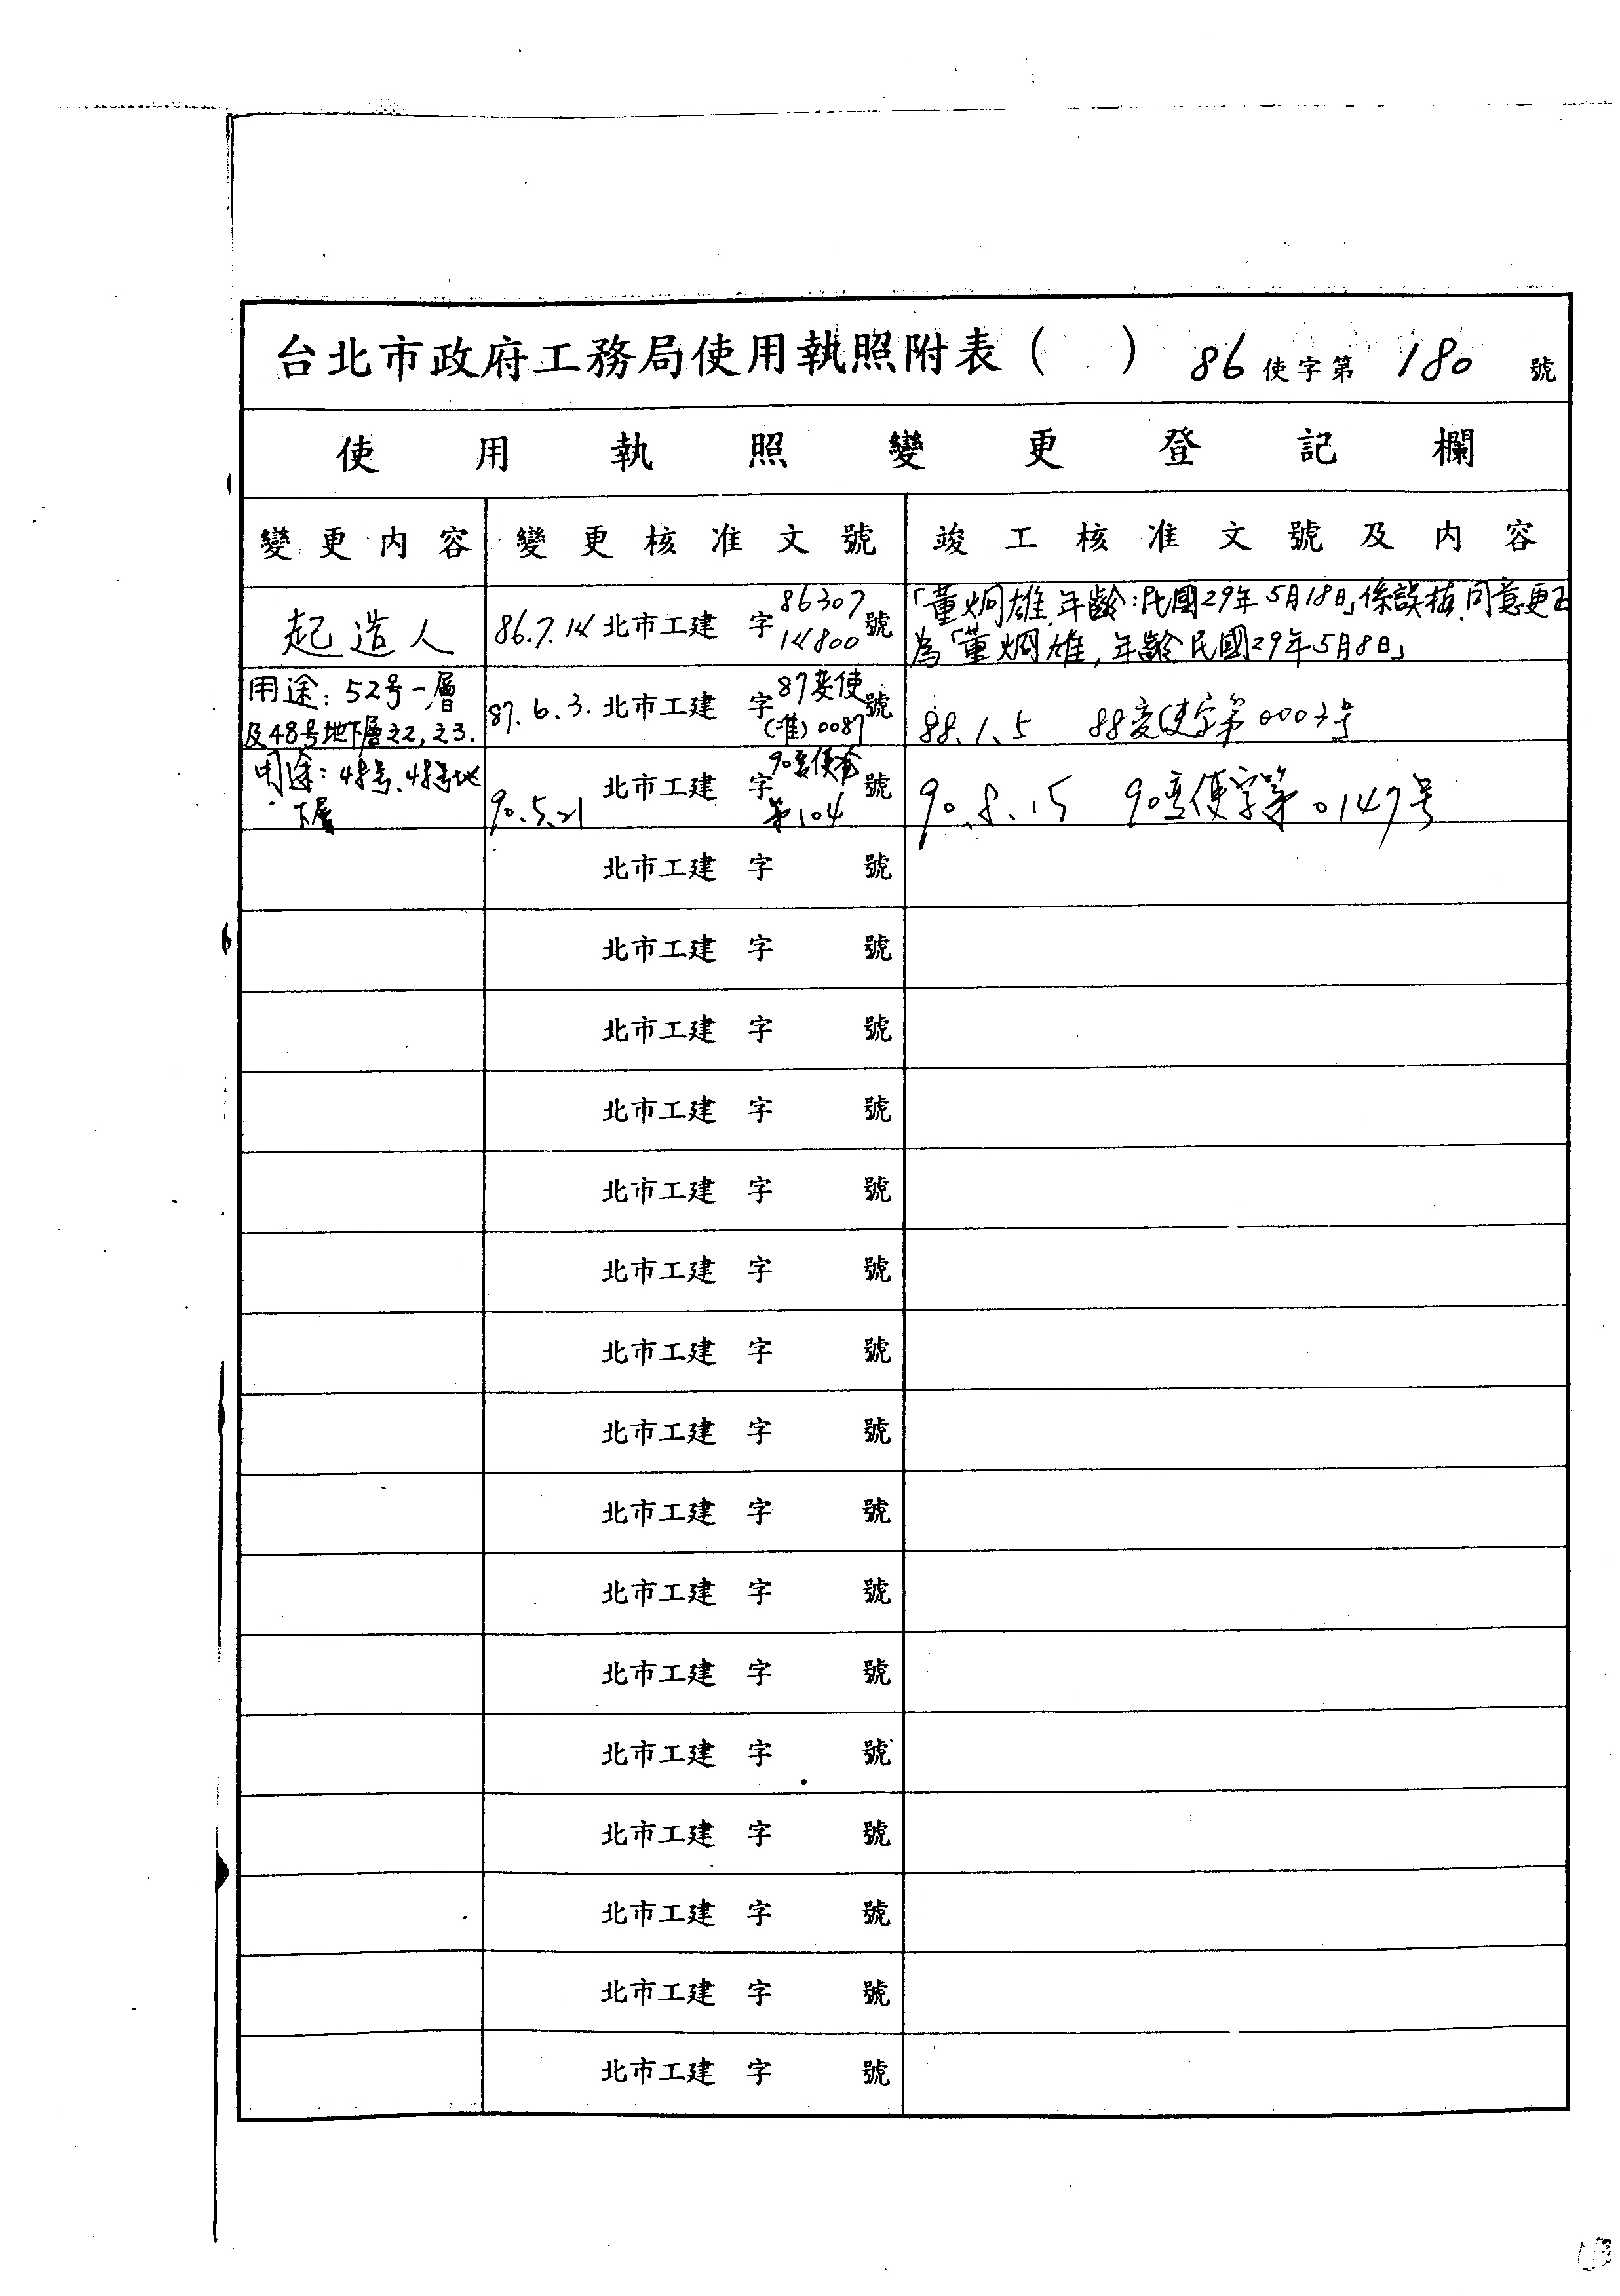 台北市政府工務局使用執照附表( ) 86使字第 180 號
使用執照變更登記欄
變更內容 變更核准文號 竣工核准文號及內容
起造人 86.7.14 北市工建 字 8630714800 號 「董炯雄,年齡:民國29年5月18日」係誤植,同意更正
為「董炯雄,年齡民國29年5月8日」
用途:52号一層
及48号地下層之2,之3. 87.6.3. 北市工建 字 87変使(准)0087 號 88.1.5 88変使字第0003号
用途:48号、48号地
下層 90.5.21 北市工建 字 90変使 第104 號 90.8.15 90変使字第0147号
北市工建 字 號
北市工建 字 號
北市工建 字 號
北市工建 字 號
北市工建 字 號
北市工建 字 號
北市工建 字 號
北市工建 字 號
北市工建 字 號
北市工建 字 號
北市工建 字 號
北市工建 字 號
北市工建 字 號
北市工建 字 號
北市工建 字 號
北市工建 字 號